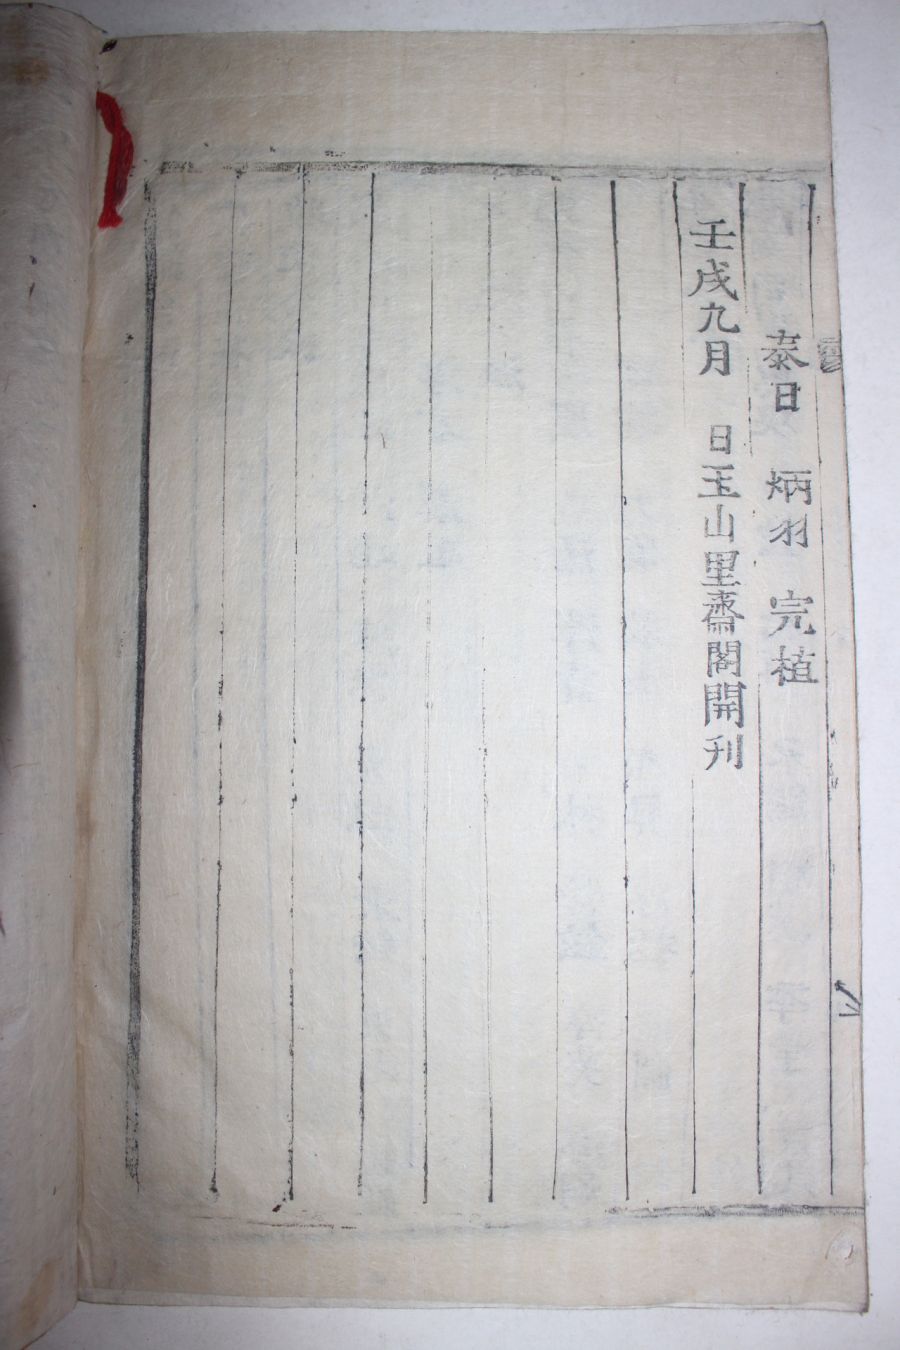 泰日 炳羽 完植
壬戌九月 日玉山里齋閣開刋